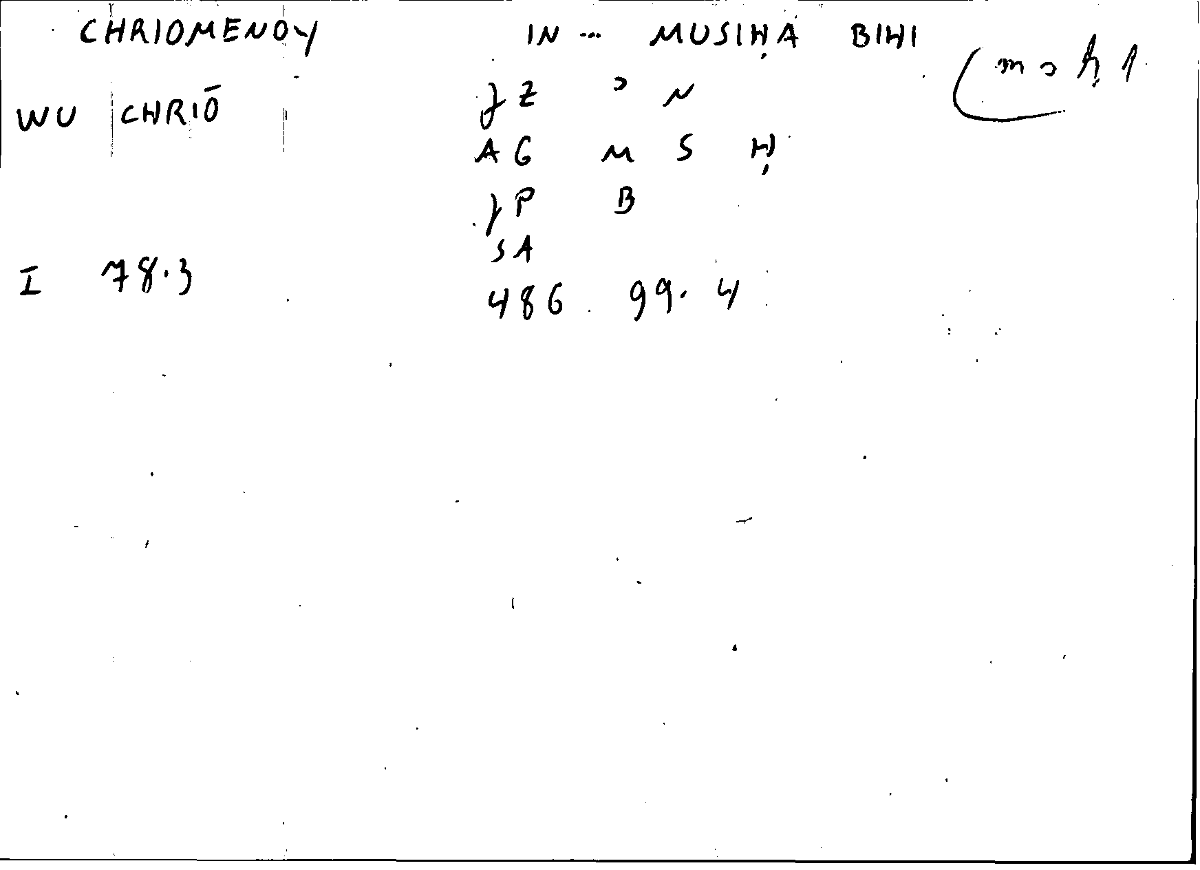 CHRIOMENOY IN ... MUSIḤA BIHI
WU CHRIŌ
JZ ɔ N
AG M S Ḥ
JP B
SA
I 78.3 486 99.4